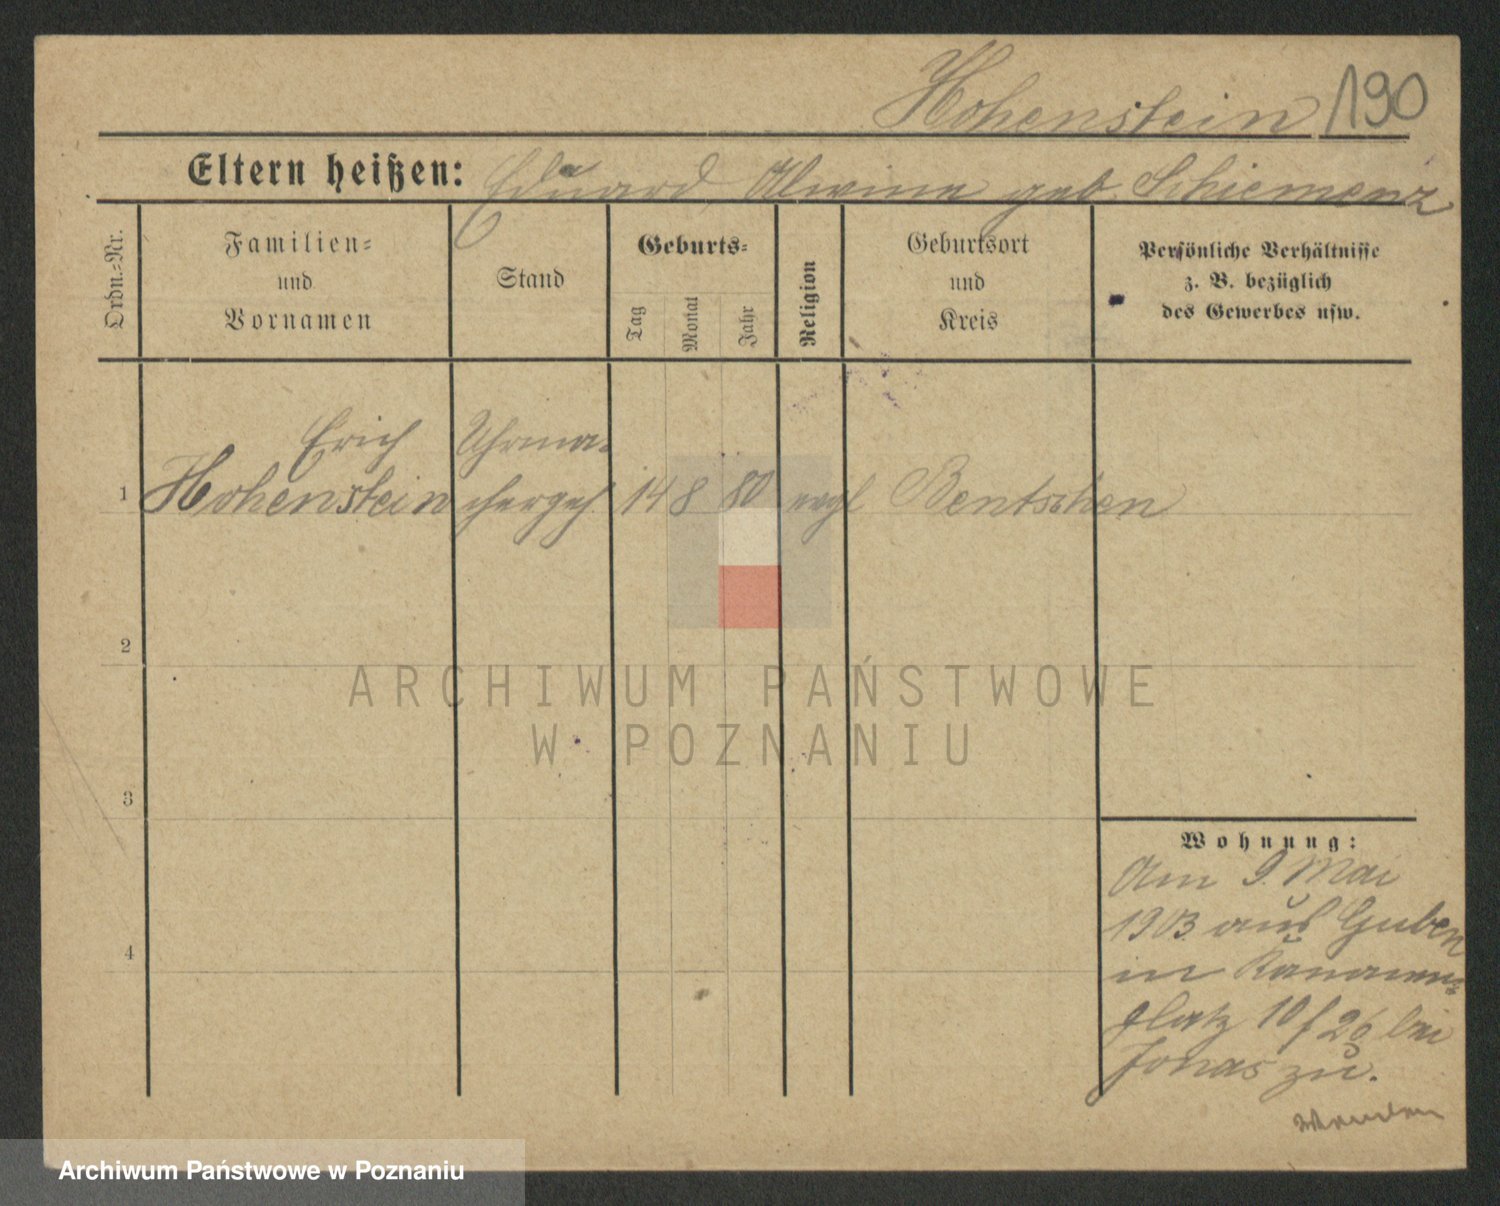 Hohenstein 190
Eltern heißen: Eduard, Alwine geb. Schiemenz
Ordn.-Nr.
Familien-
und
Vornamen
Stand
Geburts-
Tag
Monat
Jahr
Religion
Geburtsort
und
Kreis
Persönliche Verhältnisse
z. B. bezüglich
des Gewerbes usw.
Erich Uhrma-
1 Hohenstein chergeh. 14 8 80 evgl Bentschen
2
3
4
Wohnung:
Am 9. Mai
1903 aus Guben
in
platz 10/26 bei
Jonas zu.
Wenden
ARCHIWUM PAŃSTWOWE
W POZNANIU
Archiwum Państwowe w Poznaniu